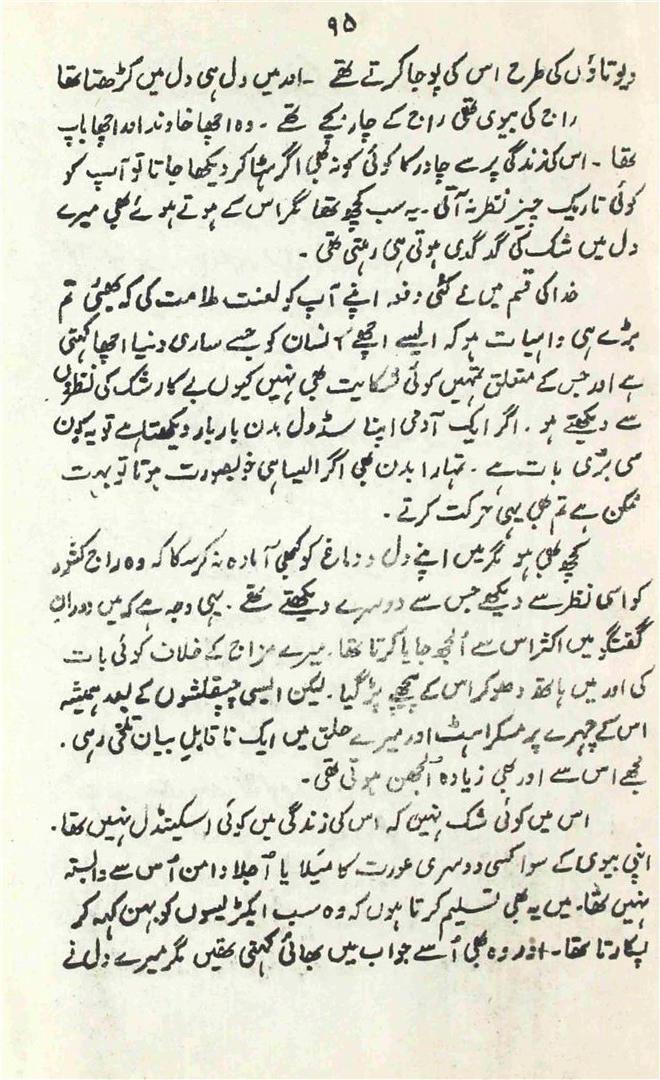 ۹۵
دیوتاؤں کی طرح اس کی پوجا کرتے تھے ۔ اور میں دل ہی دل میں کڑھتا تھا
راج کی بیوی تھی راج کے چار بچے تھے ۔ وہ اچھا خاوند اور اچھا باپ
تھا ۔ اس کی زندگی پر سے چادر کا کوئی کونہ بھی اگر ہٹا کر دیکھا جاتا تو آپ کو
کوئی تاریک چیز نظر نہ آتی ۔ یہ سب کچھ تھا مگر اس کے ہوتے ہوئے بھی میرے
دل میں شک کی گدگدی ہوتی ہی رہتی تھی ۔
خدا کی قسم میں نے کئی دفعہ اپنے آپ کو لعنت ملامت کی کہ بھئی تم
بڑے ہی واہیات ہو کہ ایسے اچھے انسان کو جسے ساری دنیا اچھا کہتی
ہے اور جس کے متعلق تمہیں کوئی شکایت بھی نہیں کیوں بے کار شک کی نظروں
سے دیکھتے ہو ۔ اگر ایک آدمی اپنا سڈول بدن بار بار دیکھتا ہے تو یہ کون
سی بڑی بات ہے ۔ تمہارا بدن بھی اگر ایسا ہی خوبصورت ہوتا تو بہت
ممکن ہے تم بھی یہی حرکت کرتے ۔
کچھ بھی ہو مگر میں اپنے دل و دماغ کو کبھی آمادہ نہ کر سکا کہ وہ راج کشور
کو اسی نظر سے دیکھے جس سے دوسرے دیکھتے تھے ۔ یہی وجہ ہے کہ میں دوران
گفتگو میں اکثر اس سے اُلجھ جایا کرتا تھا ۔ میرے مزاج کے خلاف کوئی بات
کی اور میں ہاتھ دھو کر اس کے پیچھے پڑ گیا ۔ لیکن ایسی چپقلشوں کے بعد ہمیشہ
اس کے چہرے پر مسکراہٹ اور میرے حلق میں ایک ناقابلِ بیان تلخی رہی ۔
مجھے اس سے اور بھی زیادہ اُلجھن ہوتی تھی ۔
اس میں کوئی شک نہیں کہ اس کی زندگی میں کوئی اسکینڈل نہیں تھا ۔
اپنی بیوی کے سوا کسی دوسری عورت کا میلا یا اُجلا دامن اُس سے وابستہ
نہیں تھا ۔ میں یہ بھی تسلیم کرتا ہوں کہ وہ سب ایکٹریسوں کو بہن کہہ کر
پکارتا تھا ۔ اور وہ بھی اُسے جواب میں بھائی کہتی تھیں مگر میرے دل نے